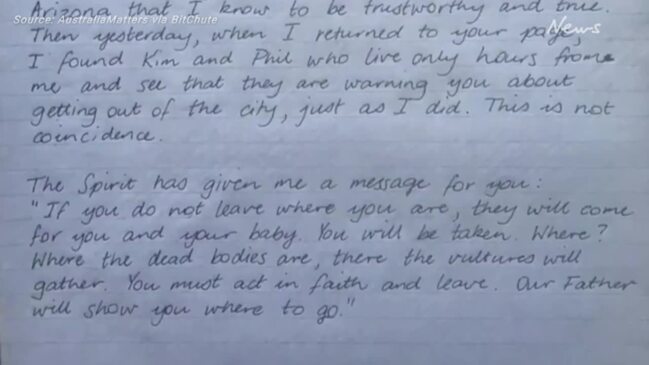 Arizona that I know to be trustworthy and true.
Source: AustraliaMatters via BitChute
News
Then yesterday, when I returned to your page,
I found Kim and Phil who live only hours frome
me and see that they are warning you about
getting out of the city, just as I did. This is not
coincidence.
The Spirit has given me a message for you:
"If you do not leave where you are, they will come
for you and your baby. You will be taken. Where?
Where the dead bodies are, there the vultures will
gather. You must act in faith and leave. Our Father
will show you where to go."